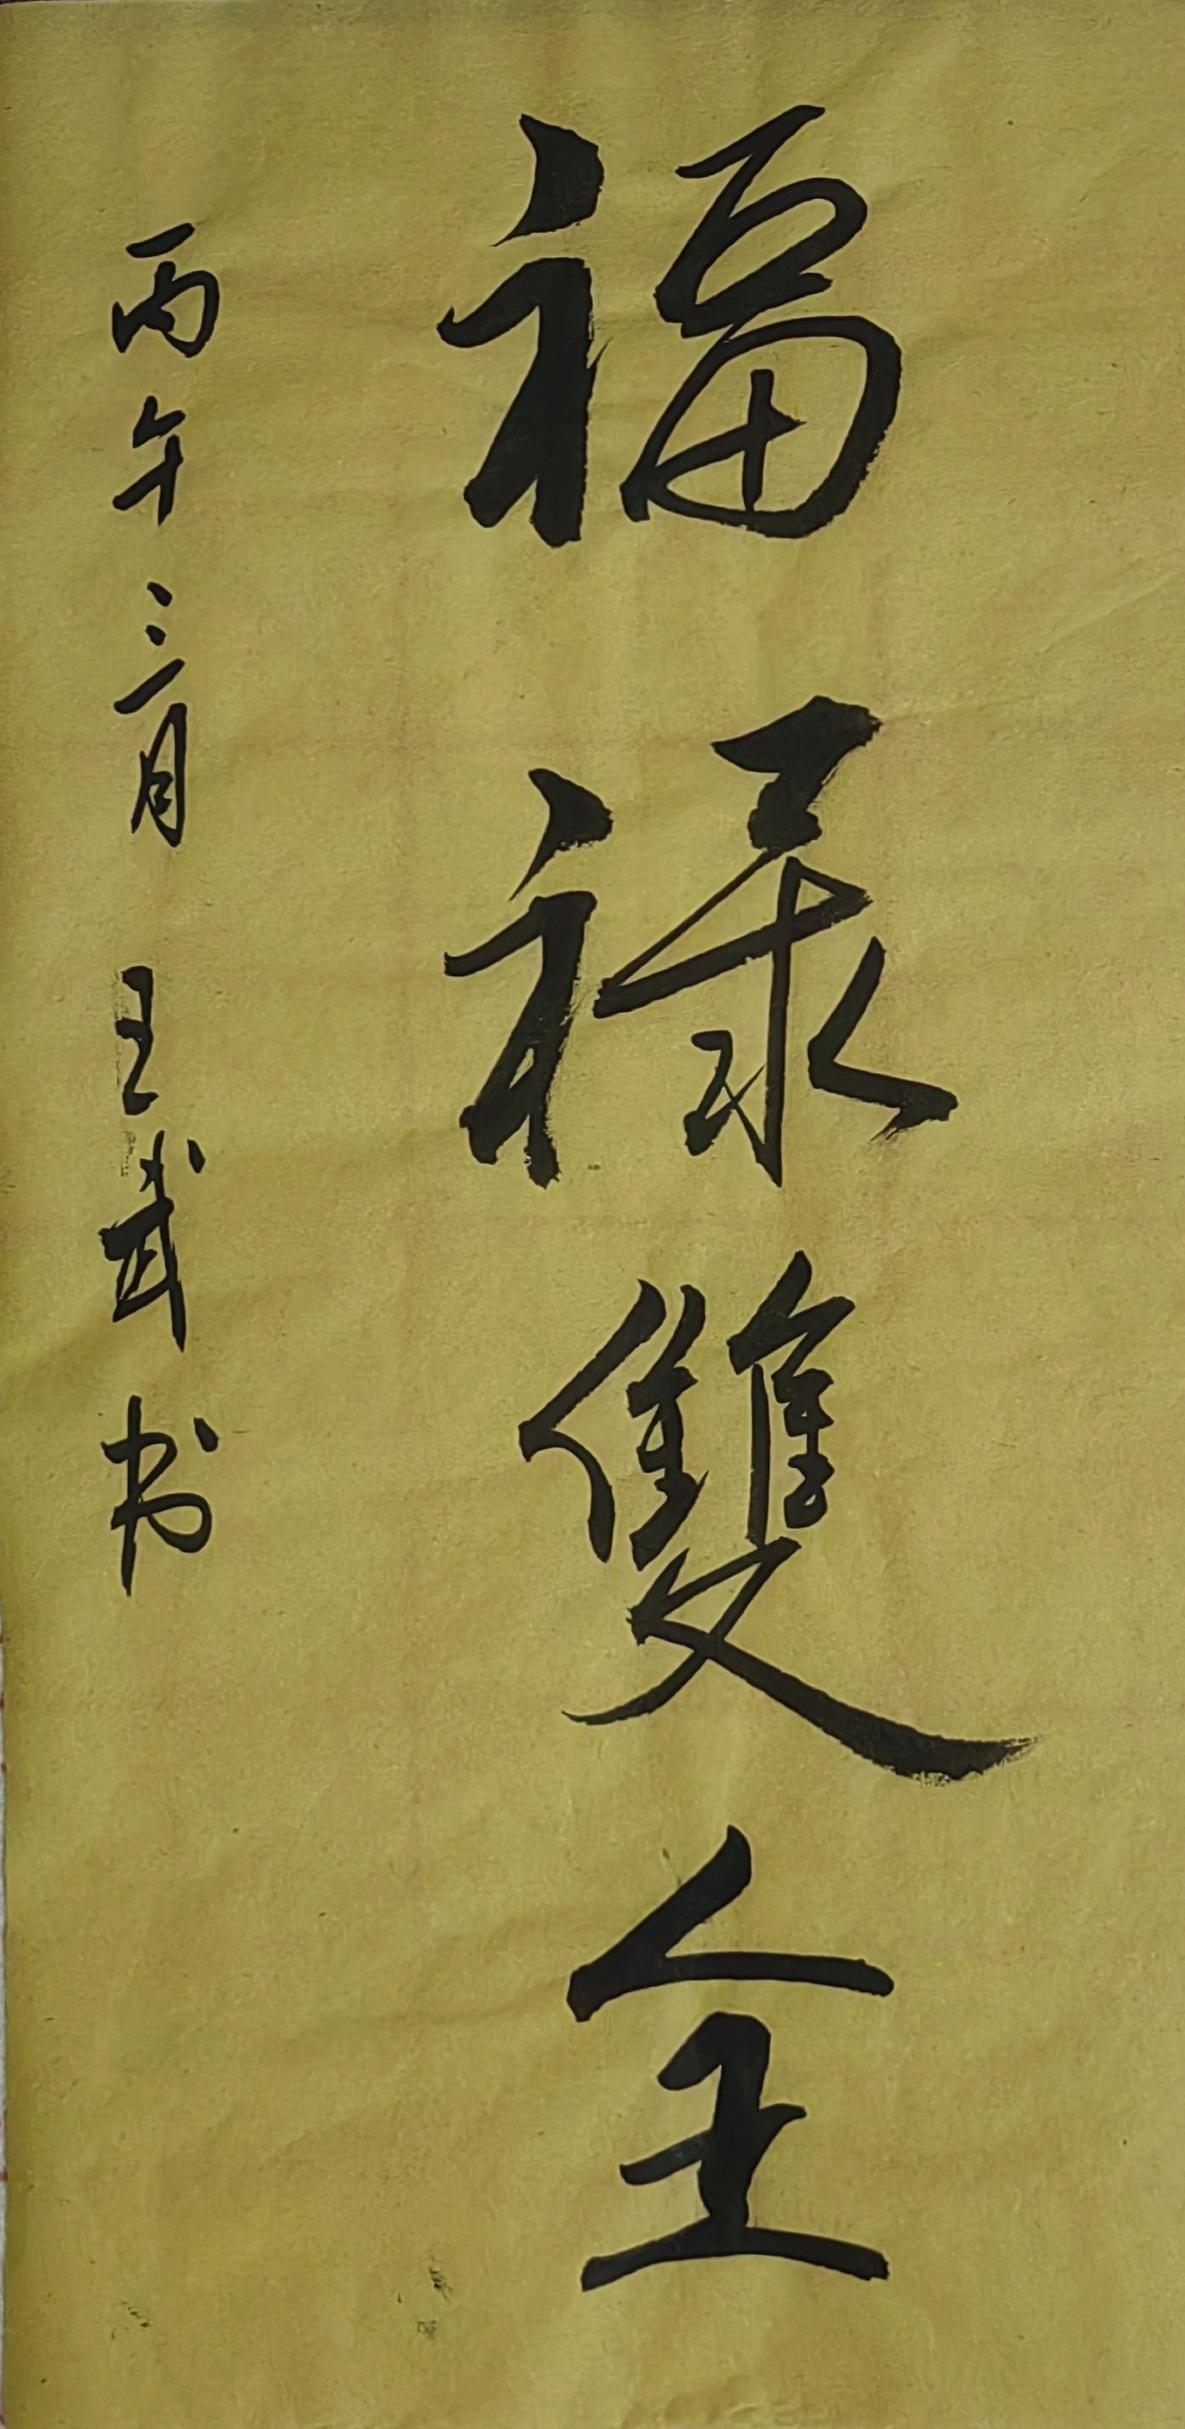 福禄雙全
丙午三月 王武书